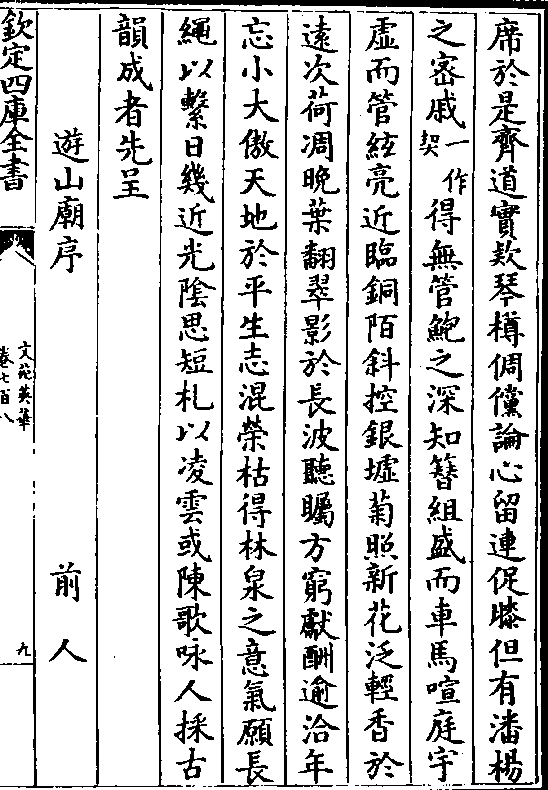 席於是齊道實欵琴樽倜儻論心留連促膝但有潘楊
之宻戚一作契得無管鮑之深知簪組盛而車馬喧庭宇
虚而管絃亮近臨銅陌斜控銀墟菊照新花泛輕香於
遠次荷凋晚葉翻翠影於長波聽矚方窮獻酬逾洽年
忘小大傲天地於平生志混榮枯得林泉之意氣願長
繩以繫日幾近光陰思短札以凌雲或陳歌咏人採古
韻成者先呈
遊山廟序 前人
欽定四庫全書
文苑英華
卷七百八
九